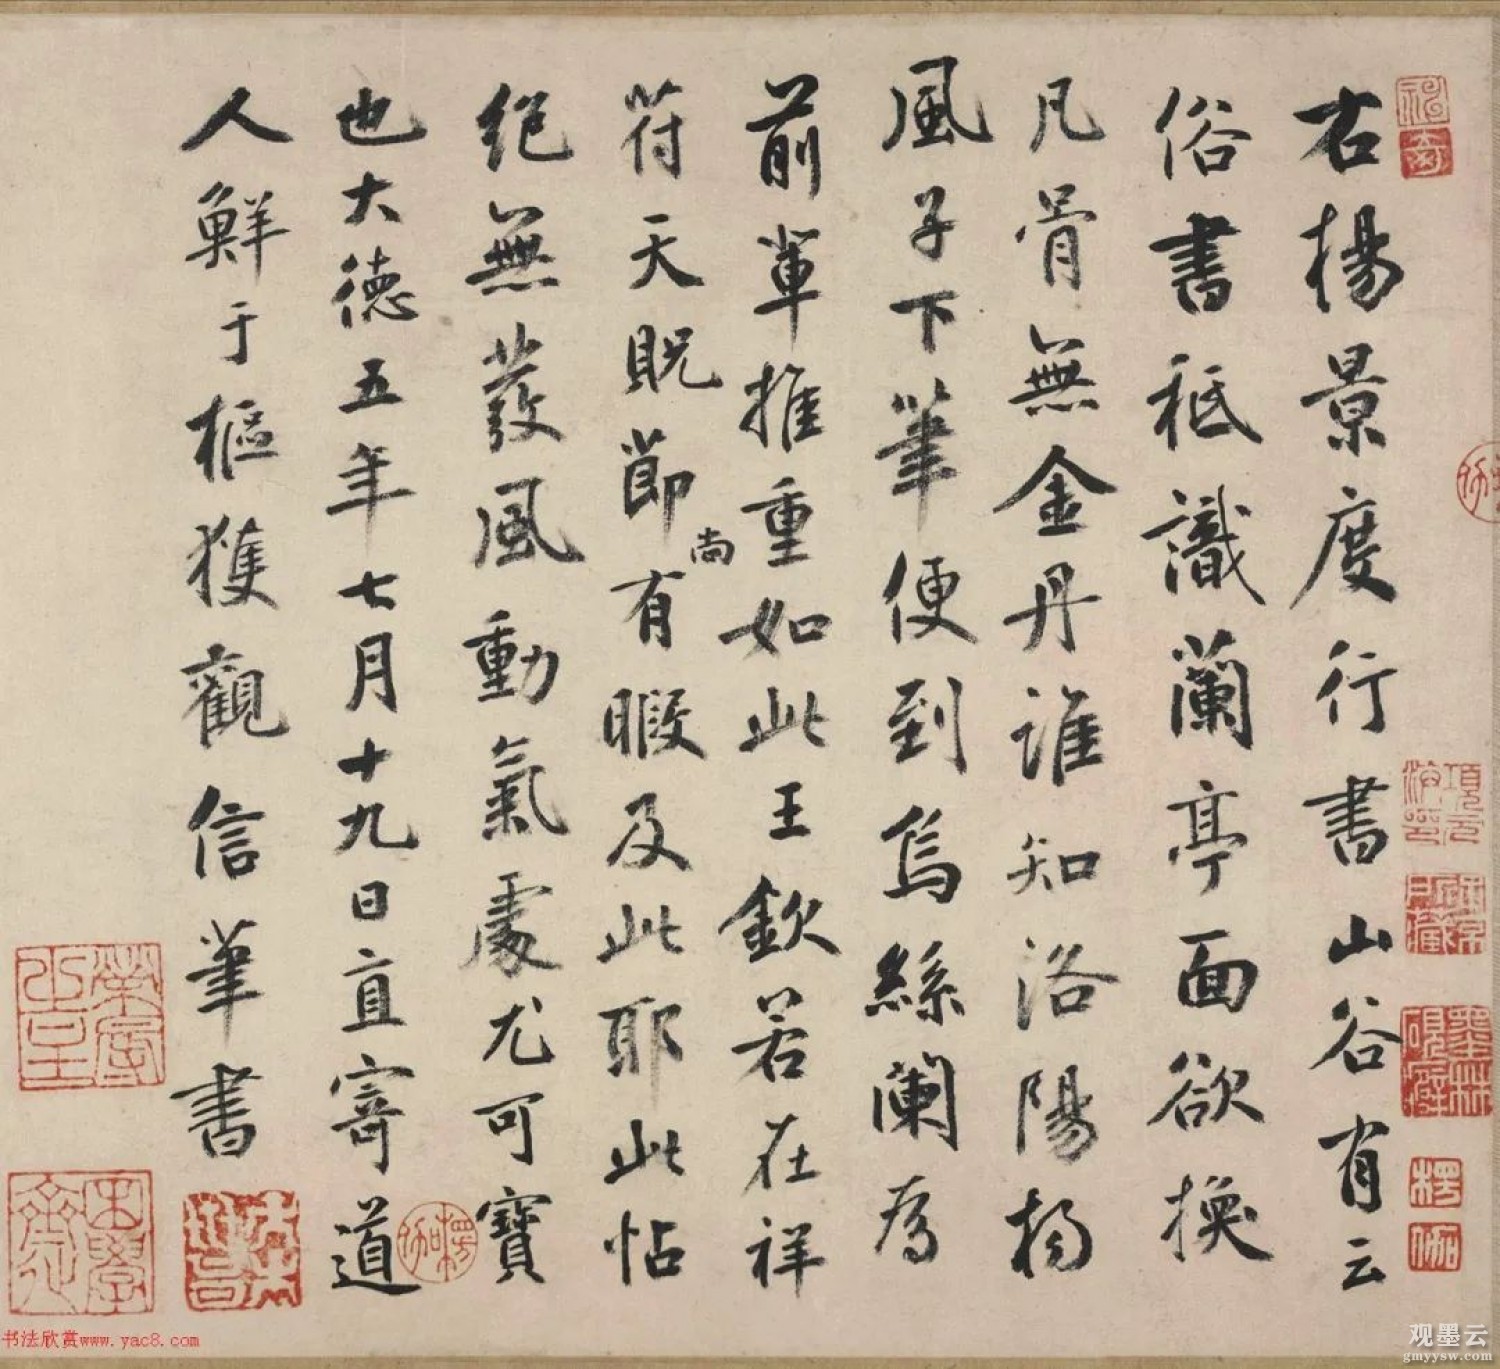 右楊景度行書山谷有云
俗書秖識蘭亭面欲換
凡骨無金丹誰知洛陽楊
風子下筆便到烏絲闌為
前輩推重如此王欽若在祥
符天貺節尚有暇及此耶此帖
絕無蕟風動氣處尤可寶
也大德五年七月十九日直寄道
人鮮于樞獲觀信筆書
項元
墨林
楞
伽
楞伽
困學齋
书法欣赏www.yac8.com
观墨云
gmyysw.com